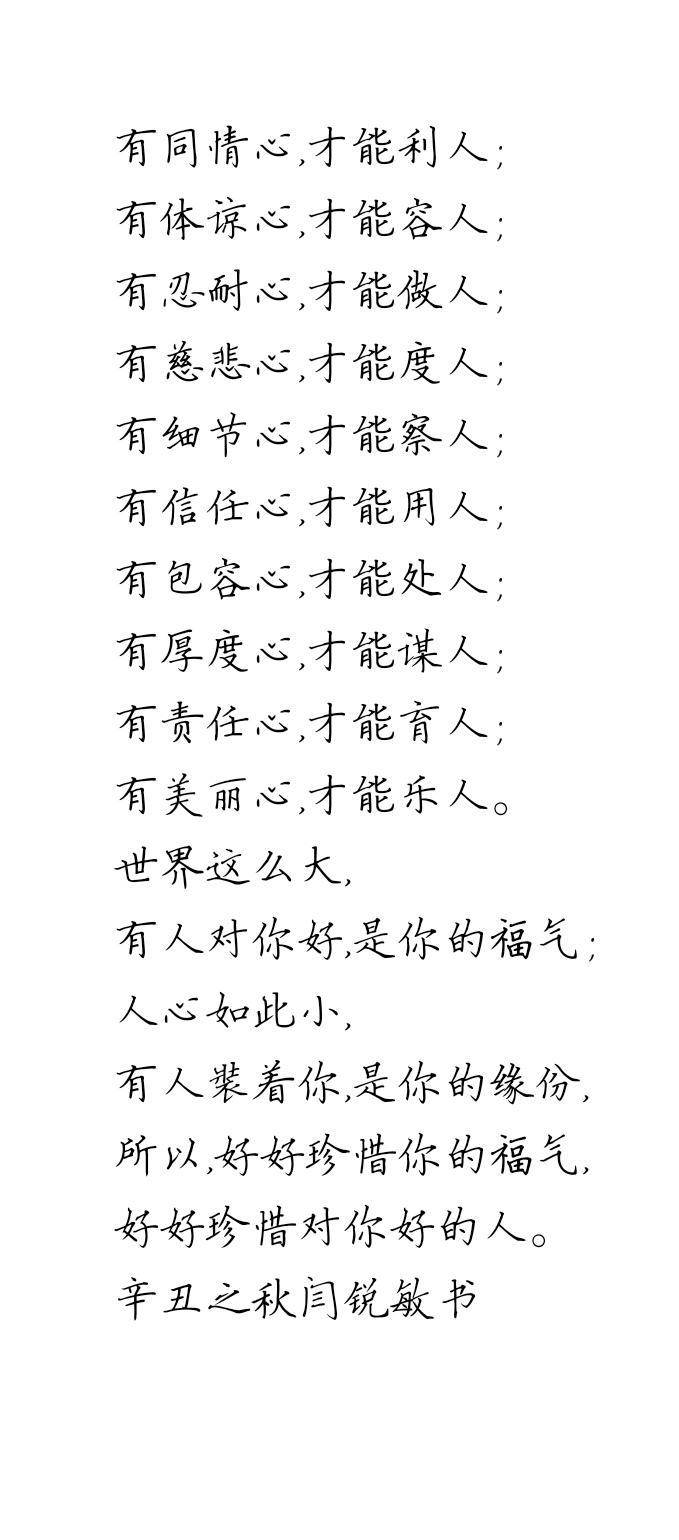 有同情心,才能利人;
有体谅心,才能容人;
有忍耐心,才能做人;
有慈悲心,才能度人;
有细节心,才能察人;
有信任心,才能用人;
有包容心,才能处人;
有厚度心,才能谋人;
有责任心,才能育人;
有美丽心,才能乐人。
世界这么大,
有人对你好,是你的福气;
人心如此小,
有人装着你,是你的缘份,
所以,好好珍惜你的福气,
好好珍惜对你好的人。
辛丑之秋闫锐敏书